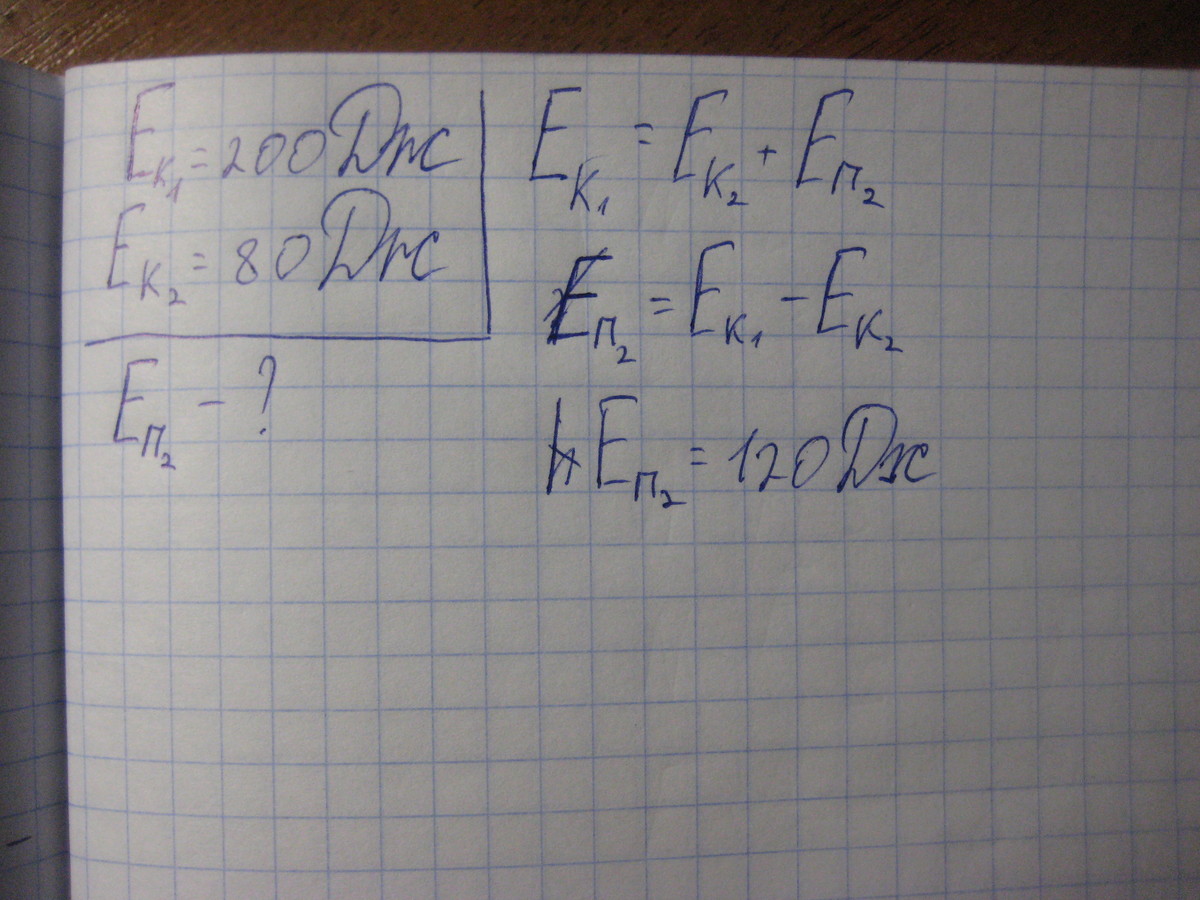 Eк₁ = 200 Дж
Eк₂ = 80 Дж
Eп₂ - ?
Eк₁ = Eк₂ + Eп₂
Eп₂ = Eк₁ - Eк₂
Eп₂ = 120 Дж